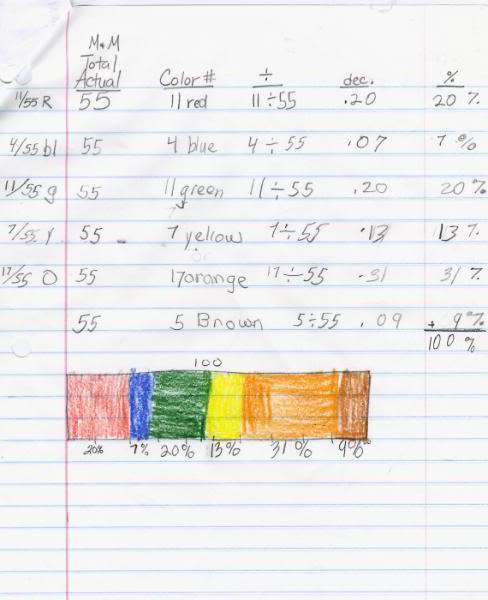 M&M
Total
Actual Color # ÷ dec. %
11/55 R 55 11 red 11÷55 .20 20 %
4/55 bl 55 4 blue 4÷55 .07 7 %
11/55 g 55 11 green 11÷55 .20 20 %
7/55 y 55 7 yellow 7÷55 .13 13 %
17/55 O 55 17 orange 17÷55 .31 31 %
55 5 Brown 5÷55 .09 + 9 %
100 %
100
20% 7% 20% 13% 31% 9%